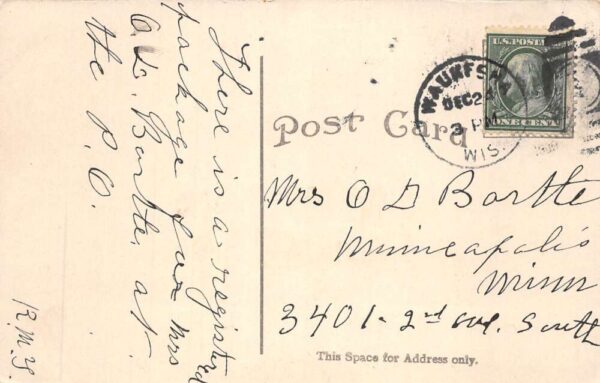 There is a registered
package for Mrs
O.D. Bartle, at
the P.O.
R.M.G.
Post Card
WAUKESHA
DEC 24
3 PM
WIS.
U.S. POSTAGE
ONE CENT
Mrs O D Bartle
Minneapolis
Minn
3401- 2nd ave. South
This Space for Address only.